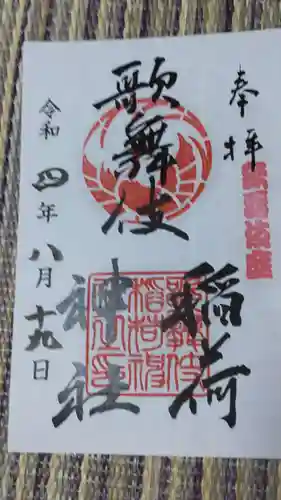 奉拝
歌舞伎座
歌舞伎
稲荷
神社
令和四年八月十九日